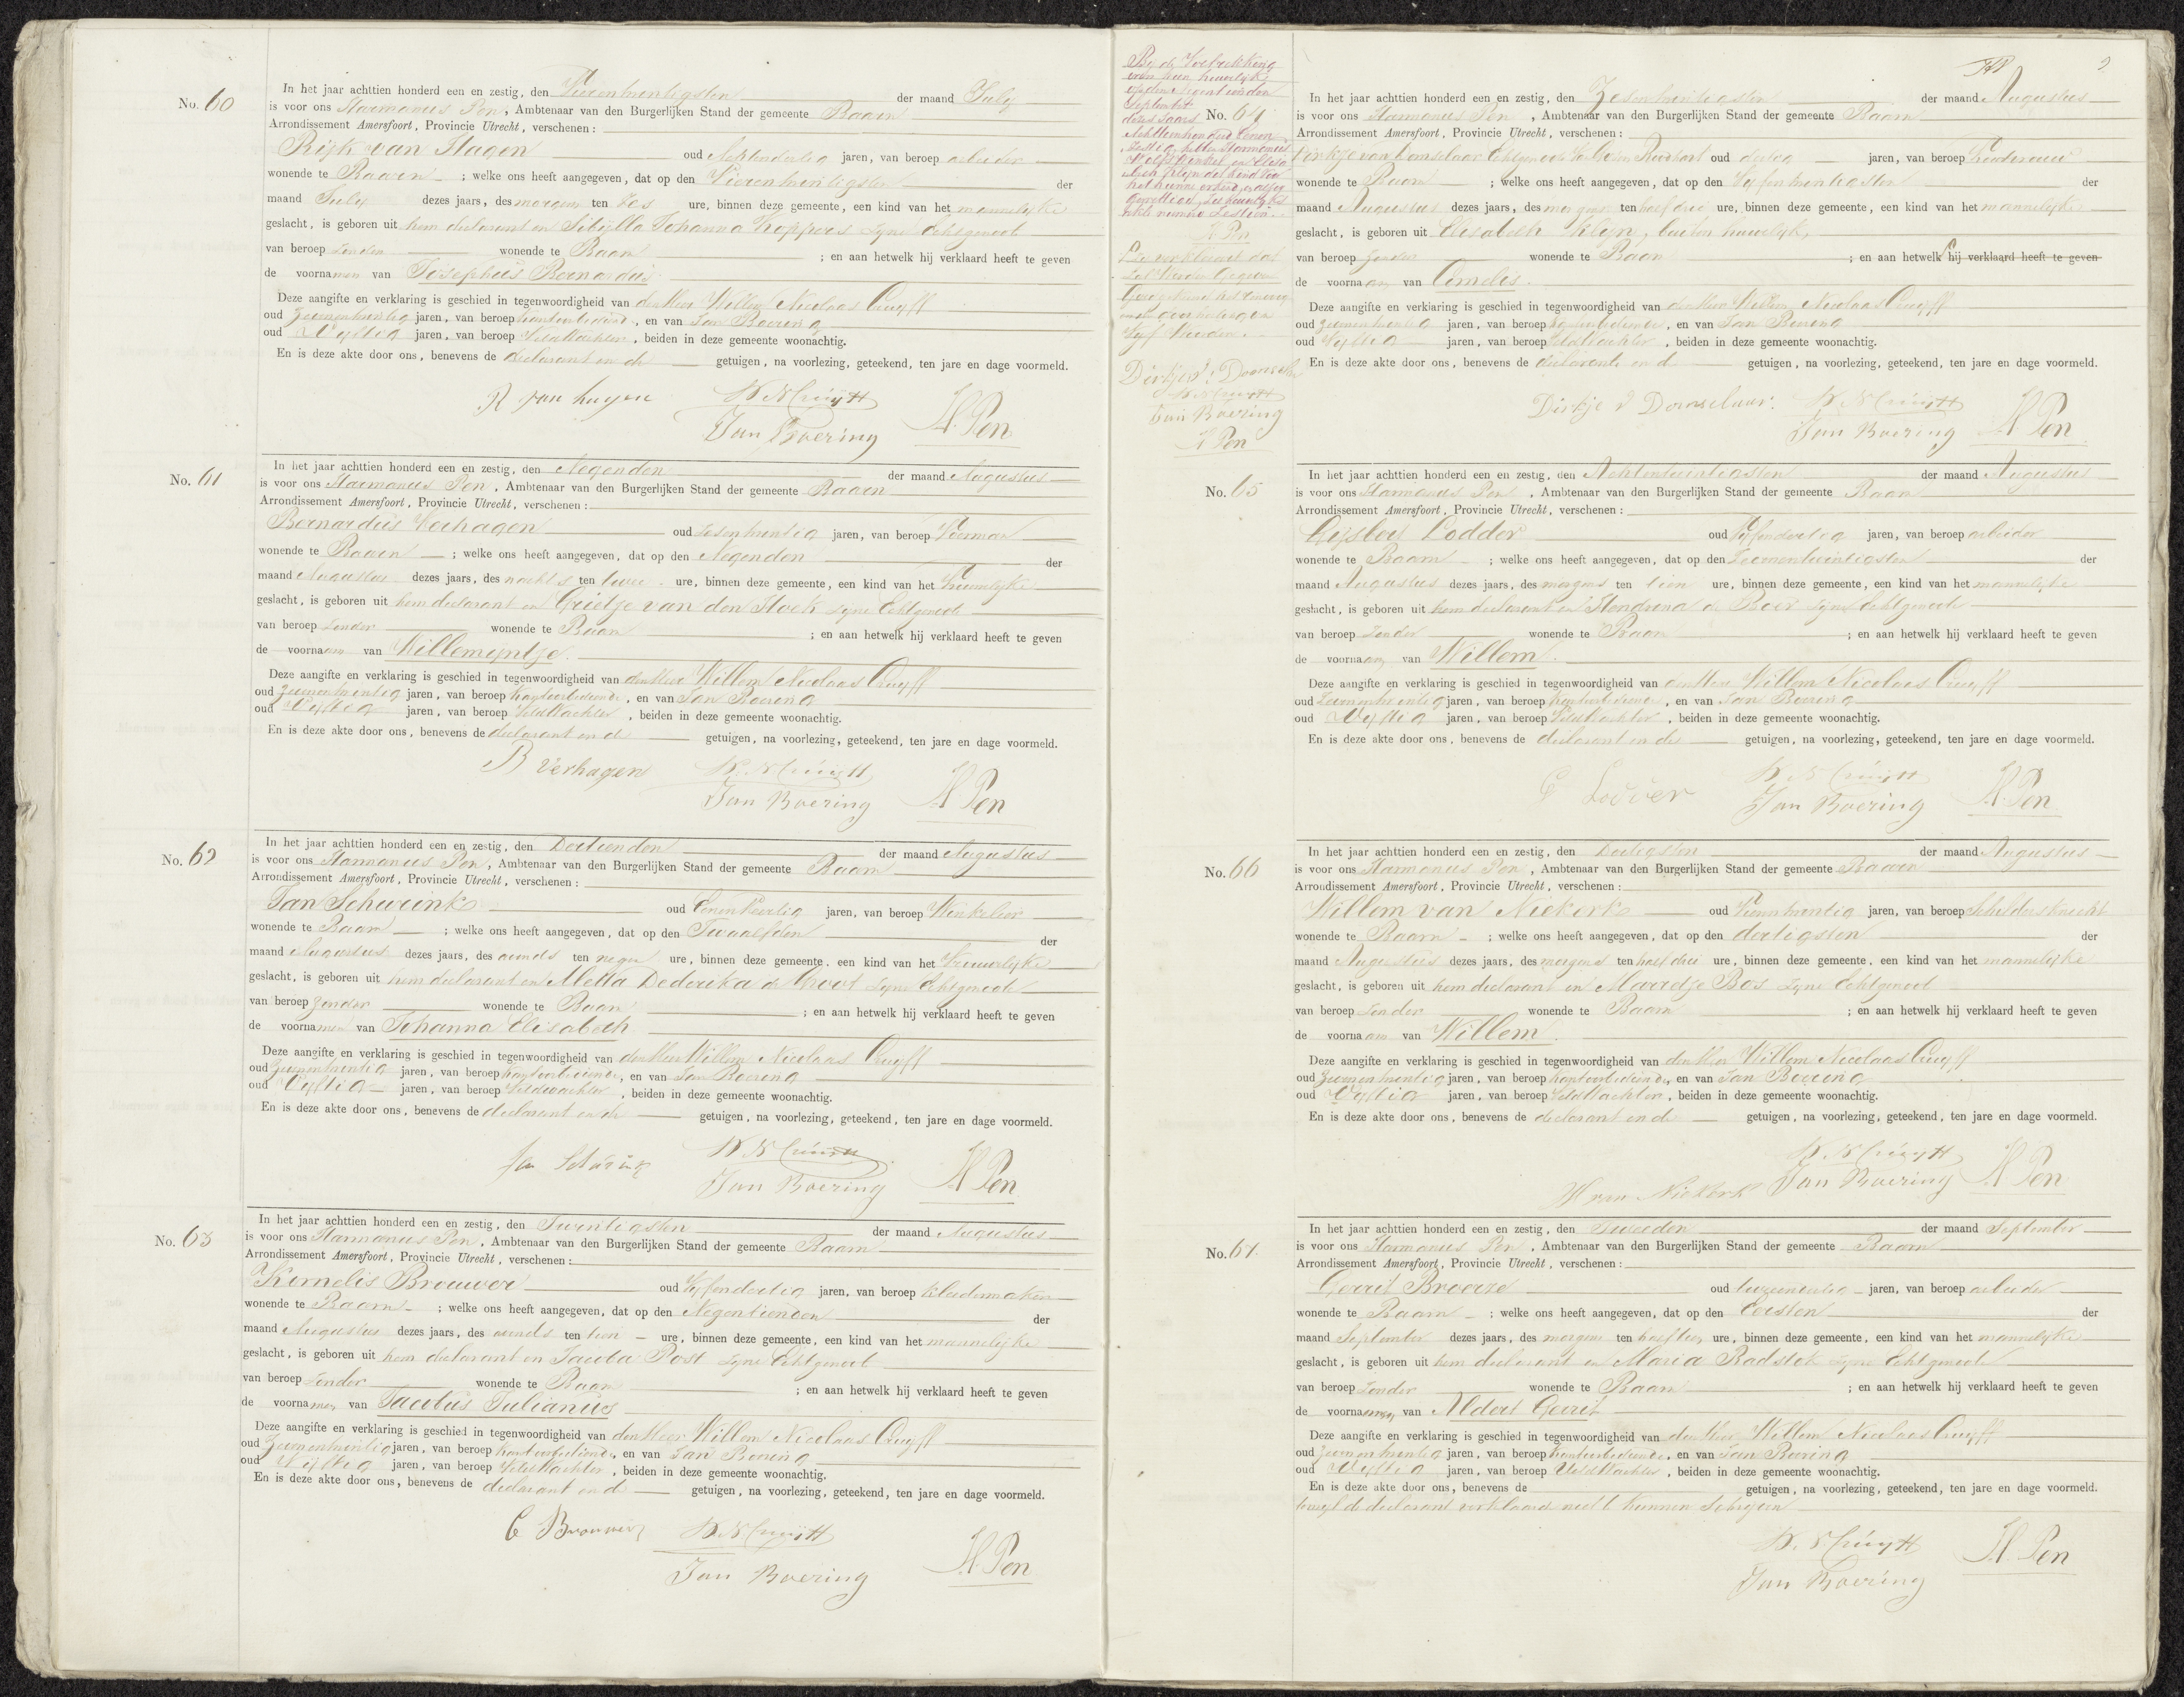 No. 60
In het jaar achttien honderd een en zestig, den Vierentwintigsten der maand July
is voor ons Harmanus Pen, Ambtenaar van den Burgerlijken Stand der gemeente Baarn
Arrondissement Amersfoort, Provincie Utrecht, verschenen:
Rijk van Hagen oud Achtendertig jaren, van beroep arbeider
wonende te Baarn ; welke ons heeft aangegeven, dat op den Vierentwintigsten der
maand July dezes jaars, des morgens ten zes ure, binnen deze gemeente, een kind van het mannelijke
geslacht, is geboren uit hem declarant en Sibÿlla Johanna Koppers zyne Echtgenoot
van beroep zonder wonende te Baarn ; en aan hetwelk hij verklaard heeft te geven
de voornamen van Josephus Bernardus.
Deze aangifte en verklaring is geschied in tegenwoordigheid van den Heer Willem Nicolaas Cruyff
oud Zevenentwintig jaren, van beroep Kantoorbediende, en van Jan Boering
oud Vyftig jaren, van beroep Veldwachter, beiden in deze gemeente woonachtig.
En is deze akte door ons, benevens de declarant en de getuigen, na voorlezing, geteekend, ten jare en dage voormeld.
R van hagen W. N Cruÿff
Jan Boering H. Pen
No. 61
In het jaar achttien honderd een en zestig, den Negenden der maand Augustus
is voor ons Harmanus Pen, Ambtenaar van den Burgerlijken Stand der gemeente Baarn
Arrondissement Amersfoort, Provincie Utrecht, verschenen:
Bernardus Verhagen oud Zesentwintig jaren, van beroep Voerman
wonende te Baarn ; welke ons heeft aangegeven, dat op den Negenden der
maand Augustus dezes jaars, des nachts ten twee ure, binnen deze gemeente, een kind van het Vrouwelijke
geslacht, is geboren uit hem declarant en Grietje van den Hoek zyne Echtgenoot
van beroep zonder wonende te Baarn ; en aan hetwelk hij verklaard heeft te geven
de voornaam van Willemyntje.
Deze aangifte en verklaring is geschied in tegenwoordigheid van den Heer Willem Nicolaas Cruyff
oud Zevenentwintig jaren, van beroep Kantoorbediende, en van Jan Boering
oud Vyftig jaren, van beroep Veldwachter, beiden in deze gemeente woonachtig.
En is deze akte door ons, benevens de declarant en de getuigen, na voorlezing, geteekend, ten jare en dage voormeld.
B Verhagen W. N Cruÿff
Jan Boering H. Pen
No. 62
In het jaar achttien honderd een en zestig, den Dertienden der maand Augustus
is voor ons Harmanus Pen, Ambtenaar van den Burgerlijken Stand der gemeente Baarn
Arrondissement Amersfoort, Provincie Utrecht, verschenen:
Jan Schurink oud Eenenveertig jaren, van beroep Winkelier
wonende te Baarn ; welke ons heeft aangegeven, dat op den Twaalfden der
maand Augustus dezes jaars, des avonds ten negen ure, binnen deze gemeente, een kind van het Vrouwelijke
geslacht, is geboren uit hem declarant en Metta Dederika de Groot zyne Echtgenoote
van beroep zonder wonende te Baarn ; en aan hetwelk hij verklaard heeft te geven
de voornamen van Johanna Elisabeth
Deze aangifte en verklaring is geschied in tegenwoordigheid van den Heer Willem Nicolaas Cruyff
oud Zevenentwintig jaren, van beroep Kantoorbediende, en van Jan Boering
oud Vyftig jaren, van beroep Veldwachter, beiden in deze gemeente woonachtig.
En is deze akte door ons, benevens de declarant en de getuigen, na voorlezing, geteekend, ten jare en dage voormeld.
Jan Schurink W. N Cruÿff
Jan Boering H. Pen
No. 63
In het jaar achttien honderd een en zestig, den Twentigsten der maand Augustus
is voor ons Harmanus Pen, Ambtenaar van den Burgerlijken Stand der gemeente Baarn
Arrondissement Amersfoort, Provincie Utrecht, verschenen:
Kornelis Brouwer oud Vyfendertig jaren, van beroep kleedermaker
wonende te Baarn ; welke ons heeft aangegeven, dat op den Negentienden der
maand Augustus dezes jaars, des avonds ten tien ure, binnen deze gemeente, een kind van het mannelijke
geslacht, is geboren uit hem declarant en Jacoba Post zyne Echtgenoot
van beroep zonder wonende te Baarn ; en aan hetwelk hij verklaard heeft te geven
de voornamen van Jacobus Julianus
Deze aangifte en verklaring is geschied in tegenwoordigheid van den Heer Willem Nicolaas Cruyff
oud Zevenentwintig jaren, van beroep Kantoorbediende, en van Jan Boering
oud Vyftig jaren, van beroep Veldwachter, beiden in deze gemeente woonachtig.
En is deze akte door ons, benevens de declarant en de getuigen, na voorlezing, geteekend, ten jare en dage voormeld.
C Brouwer W. N Cruÿff
Jan Boering H. Pen
By de Voltrekking
van hun huwelyk
op den
September
dezes jaars
Achttienhonderd Eenen
Zestig hebben Harmanus
Wolfswinkel en Elisa
beth Klyn dit kind voor
het hunne erkend
H Pen
Dirkje v. Domselaar
W. N Cruyff
Jan Boering
H Pen
No. 64
In het jaar achttien honderd een en zestig, den Zesentwintigsten der maand Augustus
is voor ons Harmanus Pen, Ambtenaar van den Burgerlijken Stand der gemeente Baarn
Arrondissement Amersfoort, Provincie Utrecht, verschenen:
Dirkje van Domselaar Echtgenoote van oud dertig jaren, van beroep Vroedvrouw
wonende te Baarn ; welke ons heeft aangegeven, dat op den Vyfentwintigsten der
maand Augustus dezes jaars, des morgens ten half drie ure, binnen deze gemeente, een kind van het mannelijke
geslacht, is geboren uit Elisabeth Klyn, buiten huwelyk,
van beroep zonder wonende te Baarn ; en aan hetwelk hij verklaard heeft te geven
de voornaam van Cornelis.
Deze aangifte en verklaring is geschied in tegenwoordigheid van den Heer Willem Nicolaas Cruyff
oud Zevenentwintig jaren, van beroep Kantoorbediende, en van Jan Boering
oud Vyftig jaren, van beroep Veldwachter, beiden in deze gemeente woonachtig.
En is deze akte door ons, benevens de declarante en d getuigen, na voorlezing, geteekend, ten jare en dage voormeld.
Dirkje v Domselaar. W. N Cruÿff
Jan Boering H. Pen
No. 65
In het jaar achttien honderd een en zestig, den Achtentwintigsten der maand Augustus
is voor ons Harmanus Pen, Ambtenaar van den Burgerlijken Stand der gemeente Baarn
Arrondissement Amersfoort, Provincie Utrecht, verschenen:
Gijsbert Lodder oud Vyfendertig jaren, van beroep arbeider
wonende te Baarn ; welke ons heeft aangegeven, dat op den Zevenentwintigsten der
maand Augustus dezes jaars, des morgens ten tien ure, binnen deze gemeente, een kind van het mannelijke
geslacht, is geboren uit hem declarant en Hendrina de Boer zyne Echtgenoote
van beroep zonder wonende te Baarn ; en aan hetwelk hij verklaard heeft te geven
de voornaam van Willem.
Deze aangifte en verklaring is geschied in tegenwoordigheid van den Heer Willem Nicolaas Cruyff
oud Zevenentwintig jaren, van beroep Kantoorbediende, en van Jan Boering
oud Vyftig jaren, van beroep Veldwachter, beiden in deze gemeente woonachtig.
En is deze akte door ons, benevens de declarant en de getuigen, na voorlezing, geteekend, ten jare en dage voormeld.
G Lodder W. N Cruÿff
Jan Boering H. Pen
No. 66
In het jaar achttien honderd een en zestig, den Dertigsten der maand Augustus
is voor ons Harmanus Pen, Ambtenaar van den Burgerlijken Stand der gemeente Baarn
Arrondissement Amersfoort, Provincie Utrecht, verschenen:
Willem van Niekerk oud jaren, van beroep Schildersknecht
wonende te Baarn ; welke ons heeft aangegeven, dat op den dertigsten der
maand Augustus dezes jaars, des morgens ten half drie ure, binnen deze gemeente, een kind van het mannelijke
geslacht, is geboren uit hem declarant en Marretje Bos zyne Echtgenoot
van beroep zonder wonende te Baarn ; en aan hetwelk hij verklaard heeft te geven
de voornaam van Willem.
Deze aangifte en verklaring is geschied in tegenwoordigheid van den Heer Willem Nicolaas Cruyff
oud Zevenentwintig jaren, van beroep Kantoorbediende, en van Jan Boering
oud Vyftig jaren, van beroep Veldwachter, beiden in deze gemeente woonachtig.
En is deze akte door ons, benevens de declarant en de getuigen, na voorlezing, geteekend, ten jare en dage voormeld.
W. N Cruÿff
W van Niekerk Jan Boering H. Pen
No. 67.
In het jaar achttien honderd een en zestig, den Tweeden der maand September
is voor ons Harmanus Pen, Ambtenaar van den Burgerlijken Stand der gemeente Baarn
Arrondissement Amersfoort, Provincie Utrecht, verschenen:
Gerrit Broerze oud jaren, van beroep arbeider
wonende te Baarn ; welke ons heeft aangegeven, dat op den Eersten der
maand September dezes jaars, des morgens ten half ure, binnen deze gemeente, een kind van het mannelijke
geslacht, is geboren uit hem declarant en Maria Radstok zyne Echtgenoote
van beroep zonder wonende te Baarn ; en aan hetwelk hij verklaard heeft te geven
de voornamen van Aldert Gerrit
Deze aangifte en verklaring is geschied in tegenwoordigheid van den Heer Willem Nicolaas Cruyff
oud Zevenentwintig jaren, van beroep Kantoorbediende, en van Jan Boering
oud Vyftig jaren, van beroep Veldwachter, beiden in deze gemeente woonachtig.
En is deze akte door ons, benevens de getuigen, na voorlezing, geteekend, ten jare en dage voormeld.
terwyl de declarant verklaard niet te kunnen schryven
W. N. Cruÿff
Jan Boering H. Pen